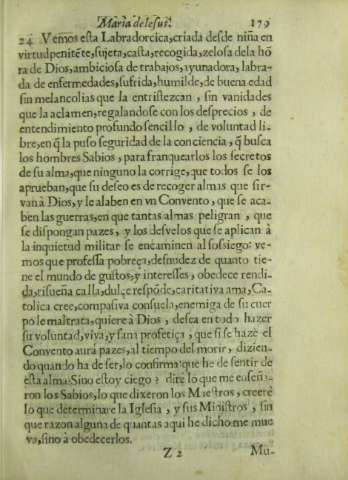 Maria de Iesus. 179
24 Vemos esta Labradorcica, criada desde niña en
virtud penitẽte, sujeta, casta, recogida, zelosa de la hõ
ra de Dios, ambiciosa de trabajos, ayunadora, labra-
da de enfermedades, sufrida, humilde, de buena edad
sin melancolias que la entristezcan, sin vanidades
que la aclamen, regalandose con los desprecios, de
entendimiento profundo sencillo, de voluntad li-
bre, en q̃ la puso seguridad de la conciencia, q̃ busca
los hombres Sabios, para franquearlos los secretos
de su alma, que ninguno la corrige, que todos se los
aprueban, que su deseo es de recoger almas que sir-
van à Dios, y le alaben en vn Convento, que se aca-
ben las guerras, en que tantas almas peligran, que
se dispongan pazes, y los desvelos que se aplican à
la inquietud militar se encaminen al sosiego: ve-
mos que professa pobreça, desnudez de quanto tie-
ne el mundo de gustos, y interesses, obedece rendi-
da, risueña calla, dulçe respõde, caritativa ama, Ca-
tolica cree, compasiva consuela, enemiga de su cuer
po le maltrata, quiere à Dios, desea en todo hazer
su voluntad, viva, y sana profetiça, que si se haze el
Convento aurà pazes, al tiempo del morir, dizien-
do quando ha de ser, lo confirma: que he de sentir de
esta alma? Sino estoy ciego? dirè lo que me enseña-
ron los Sabios, lo que dixeron los Maestros, creerè
lo que determinare la Iglesia, y sus Ministros, sin
que razon alguna de quantas aqui he dicho me mue
va, sino à obedecerlos.
Z 2 Mu-